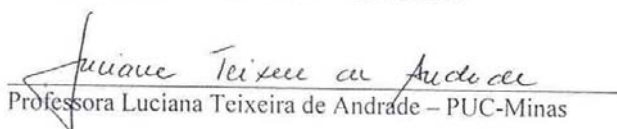 Luciana Teixeira de Andrade
Professora Luciana Teixeira de Andrade – PUC-Minas